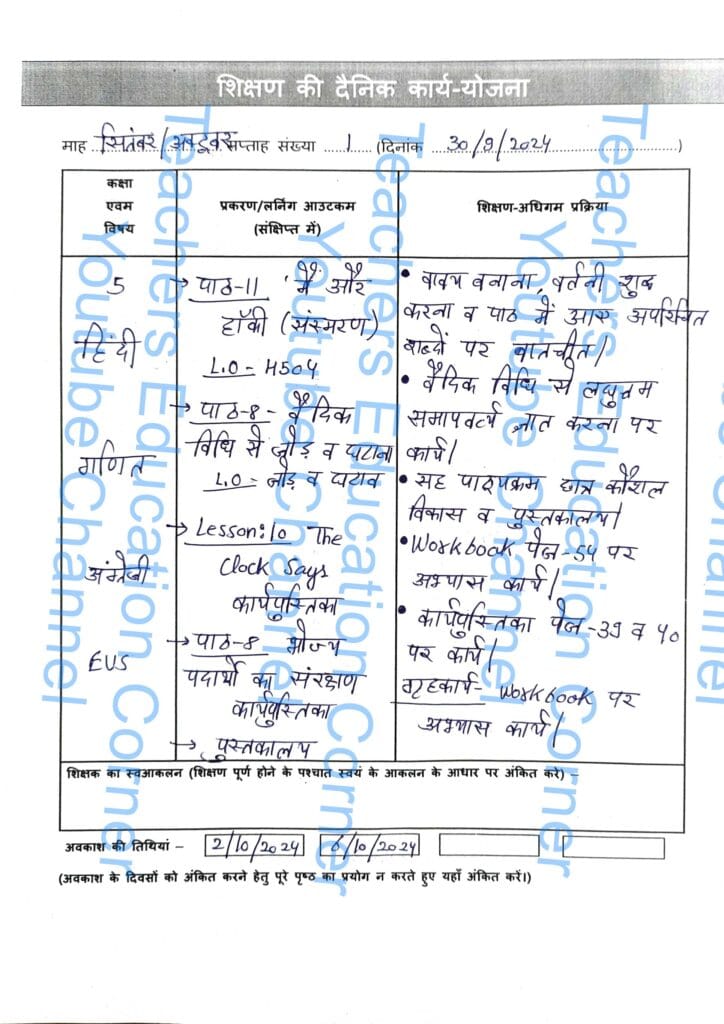 शिक्षण की दैनिक कार्य-योजना
माह सितंबर/अक्टूबर सप्ताह संख्या ....1.... (दिनांक ...30/9/2024...)
कक्षा
एवम
विषय
प्रकरण/लर्निंग आउटकम
(संक्षिप्त में)
शिक्षण-अधिगम प्रक्रिया
5
हिंदी
गणित
अंग्रेजी
EVS
→ पाठ-11 'मैं और
हॉकी (संस्मरण)
L.O - H504
→ पाठ-8 - वैदिक
विधि से जोड़ व घटाना
L.O - जोड़ व घटाव
→ Lesson:10 The
Clock Says
कार्यपुस्तिका
→ पाठ-8 भोज्य
पदार्थो का संरक्षण
कार्यपुस्तिका
→ पुस्तकालय
• वाक्य बनाना, वर्तनी शुद्ध
करना व पाठ में आए अपरिचित
शब्दों पर बातचीत।
• वैदिक विधि से लघुत्तम
समापवर्त्य ज्ञात करना पर
कार्य।
• सह पाठ्यक्रम छात्र कौशल
विकास व पुस्तकालय।
• Workbook पेज-54 पर
अभ्यास कार्य।
• कार्यपुस्तिका पेज-39 व 40
पर कार्य।
गृहकार्य- Workbook पर
अभ्यास कार्य।
शिक्षक का स्वआकलन (शिक्षण पूर्ण होने के पश्चात स्वयं के आकलन के आधार पर अंकित करे) –
अवकाश की तिथियां – 2/10/2024 6/10/2024
(अवकाश के दिवसों को अंकित करने हेतु पूरे पृष्ठ का प्रयोग न करते हुए यहाँ अंकित करें।)
Teachers Education Corner
Youtube Channel
Teachers Education Corner
Youtube Channel
Teachers Education Corner
Youtube Channel